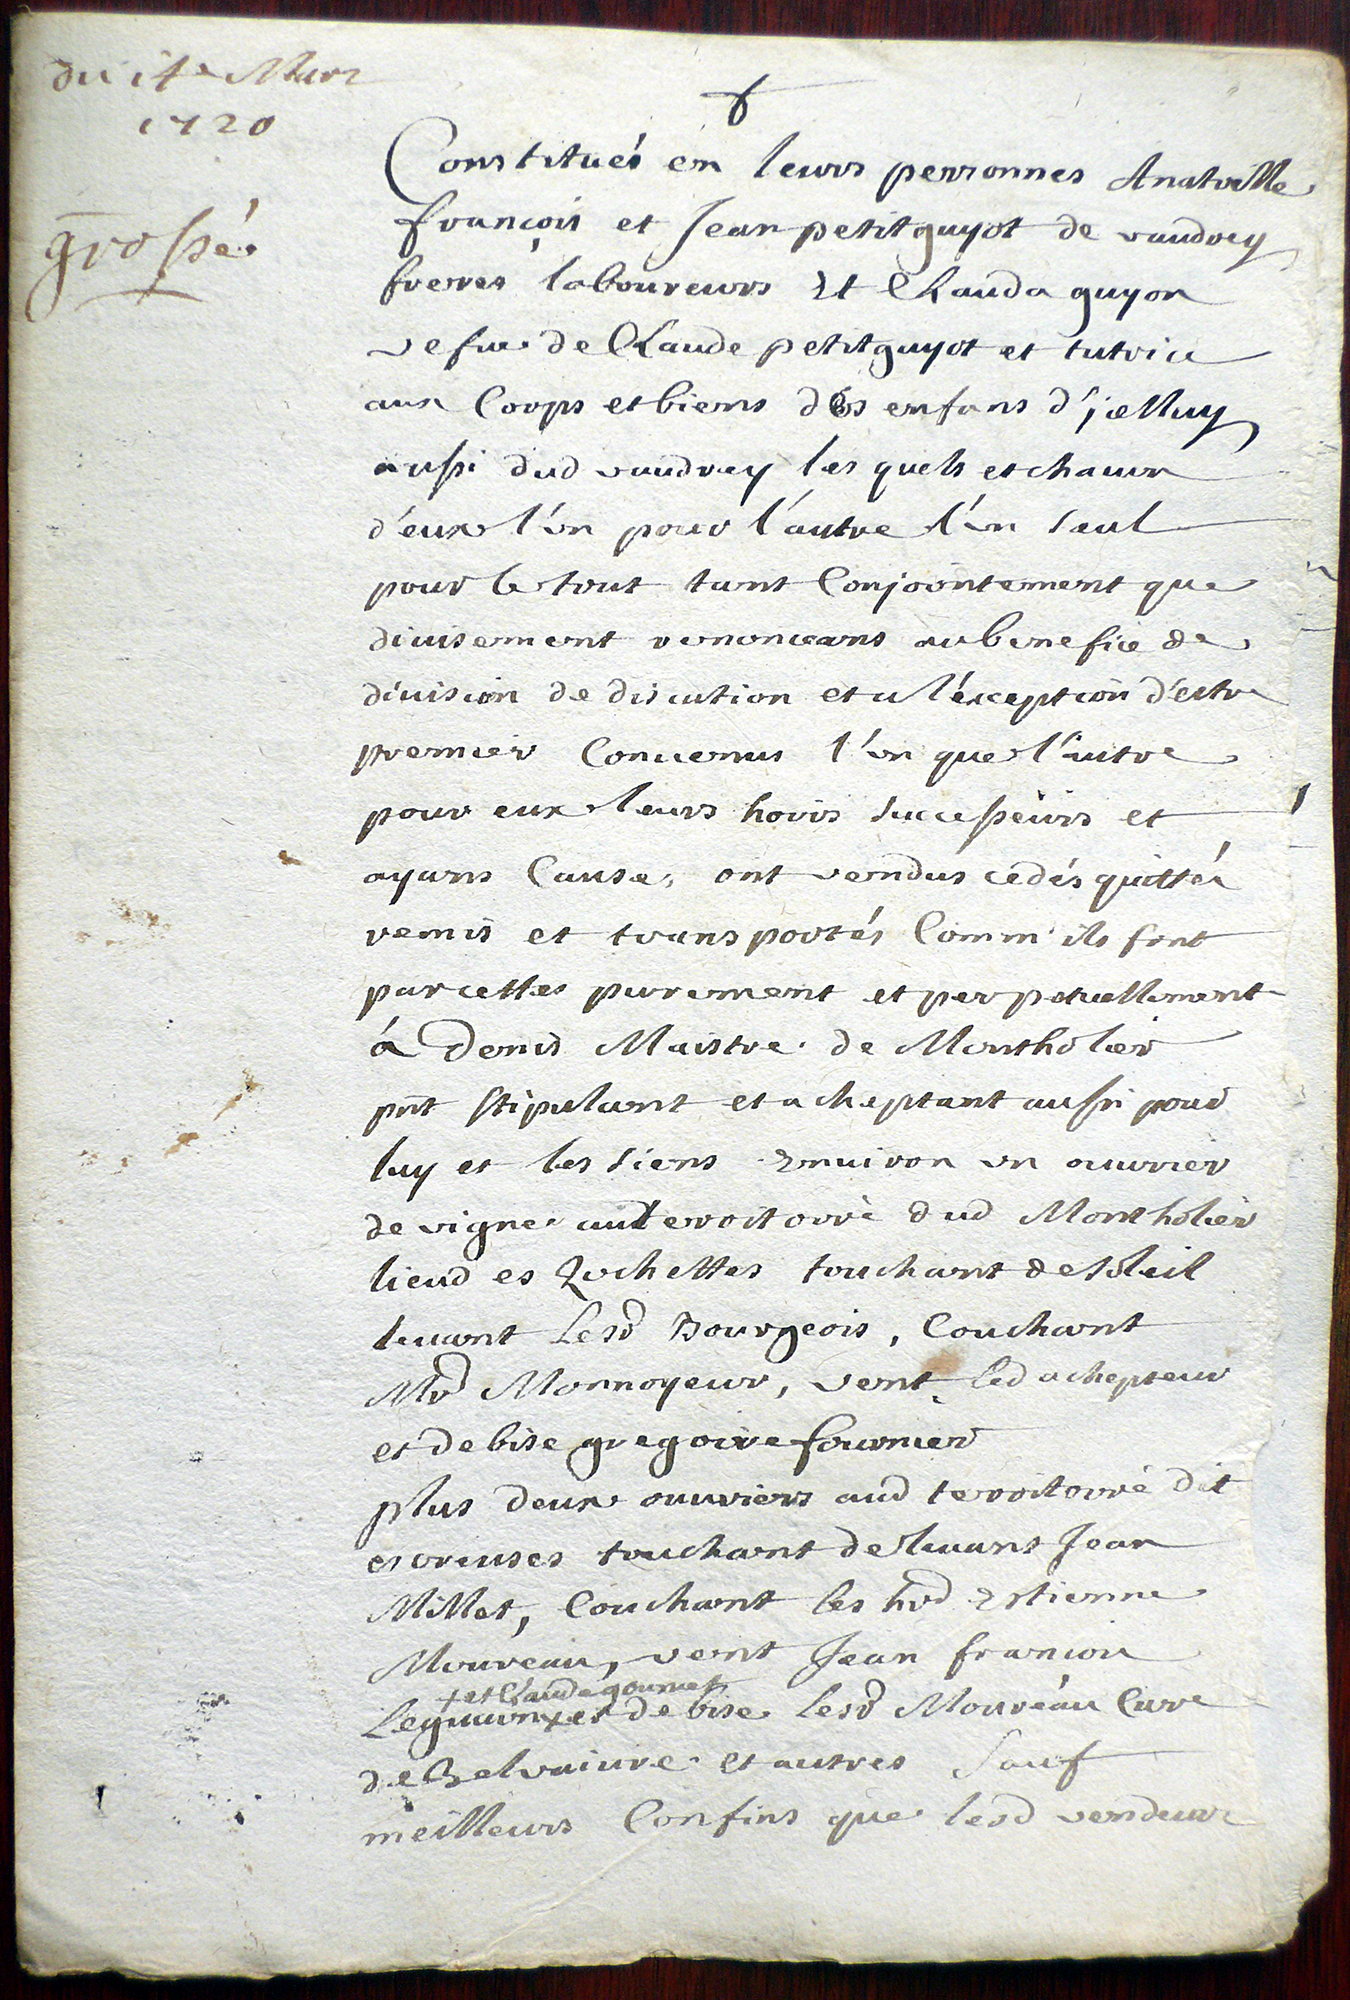 du 17e Mars
1720
grossé
Constitués en leurs personnes Anatoille
françois et Jean petitguyot de vaudrey
freres laboureurs Et Clauda guyon
vefue de Claude petitguyot et tutrice
aux Corps et biens dés enfans d'jcelluy
aussi dud vaudrey lesquels et chacun
d'eux l'un pour l'autre l'un seul
pour le tout tant Conjointement que
diuisement renonceans au benefice de
diuision de discution et a l'éxception d'estre
premier Conuenus l'un que l'autre
pour eux leurs hoirs successeurs et
ayans Cause, ont vendus cedés quittés
remis et transportés Comm'ils font
par cettes purement et perpetuellement
á Denis Maistre de Montholier
pnt stipulant et acheptant aussi pour
luy et les siens Enuiron un ouurier
de vigne au territoire dud Montholier
lieud es Rochettes touchant de soleil
leuant Le sr Bourgeois, Couchant
Mr Monnoyeur, vent led achepteur
et de bise gregoire fournier
plus deux ouuriers aud territoire dit
es creuses touchant de leuant Jean
Millet, Couchant les hrs Estienne
Moureau, vent Jean francois
+ et Claude
et de bise Le sr Mouréau Cure
de Belvaivre et autres Sauf
meilleurs Confins que lesd vendeurs